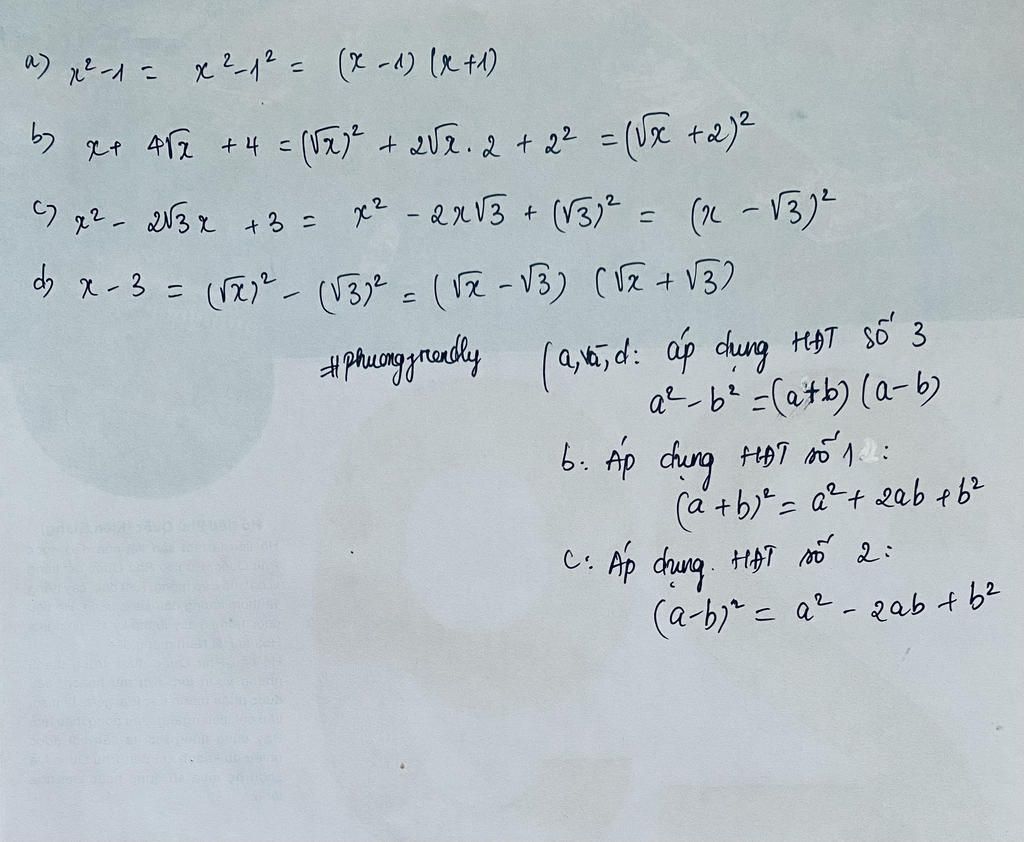 a) x² - 1 = x² - 1² = (x - 1) (x + 1)
b) x + 4√x + 4 = (√x)² + 2√x . 2 + 2² = (√x + 2)²
c) x² - 2√3 x + 3 = x² - 2x√3 + (√3)² = (x - √3)²
d) x - 3 = (√x)² - (√3)² = (√x - √3) (√x + √3)
(a, và, d: áp dụng HĐT số 3
a² - b² = (a + b) (a - b)
b: Áp dụng HĐT số 1 :
(a + b)² = a² + 2ab + b²
c: Áp dụng. HĐT số 2:
(a - b)² = a² - 2ab + b²